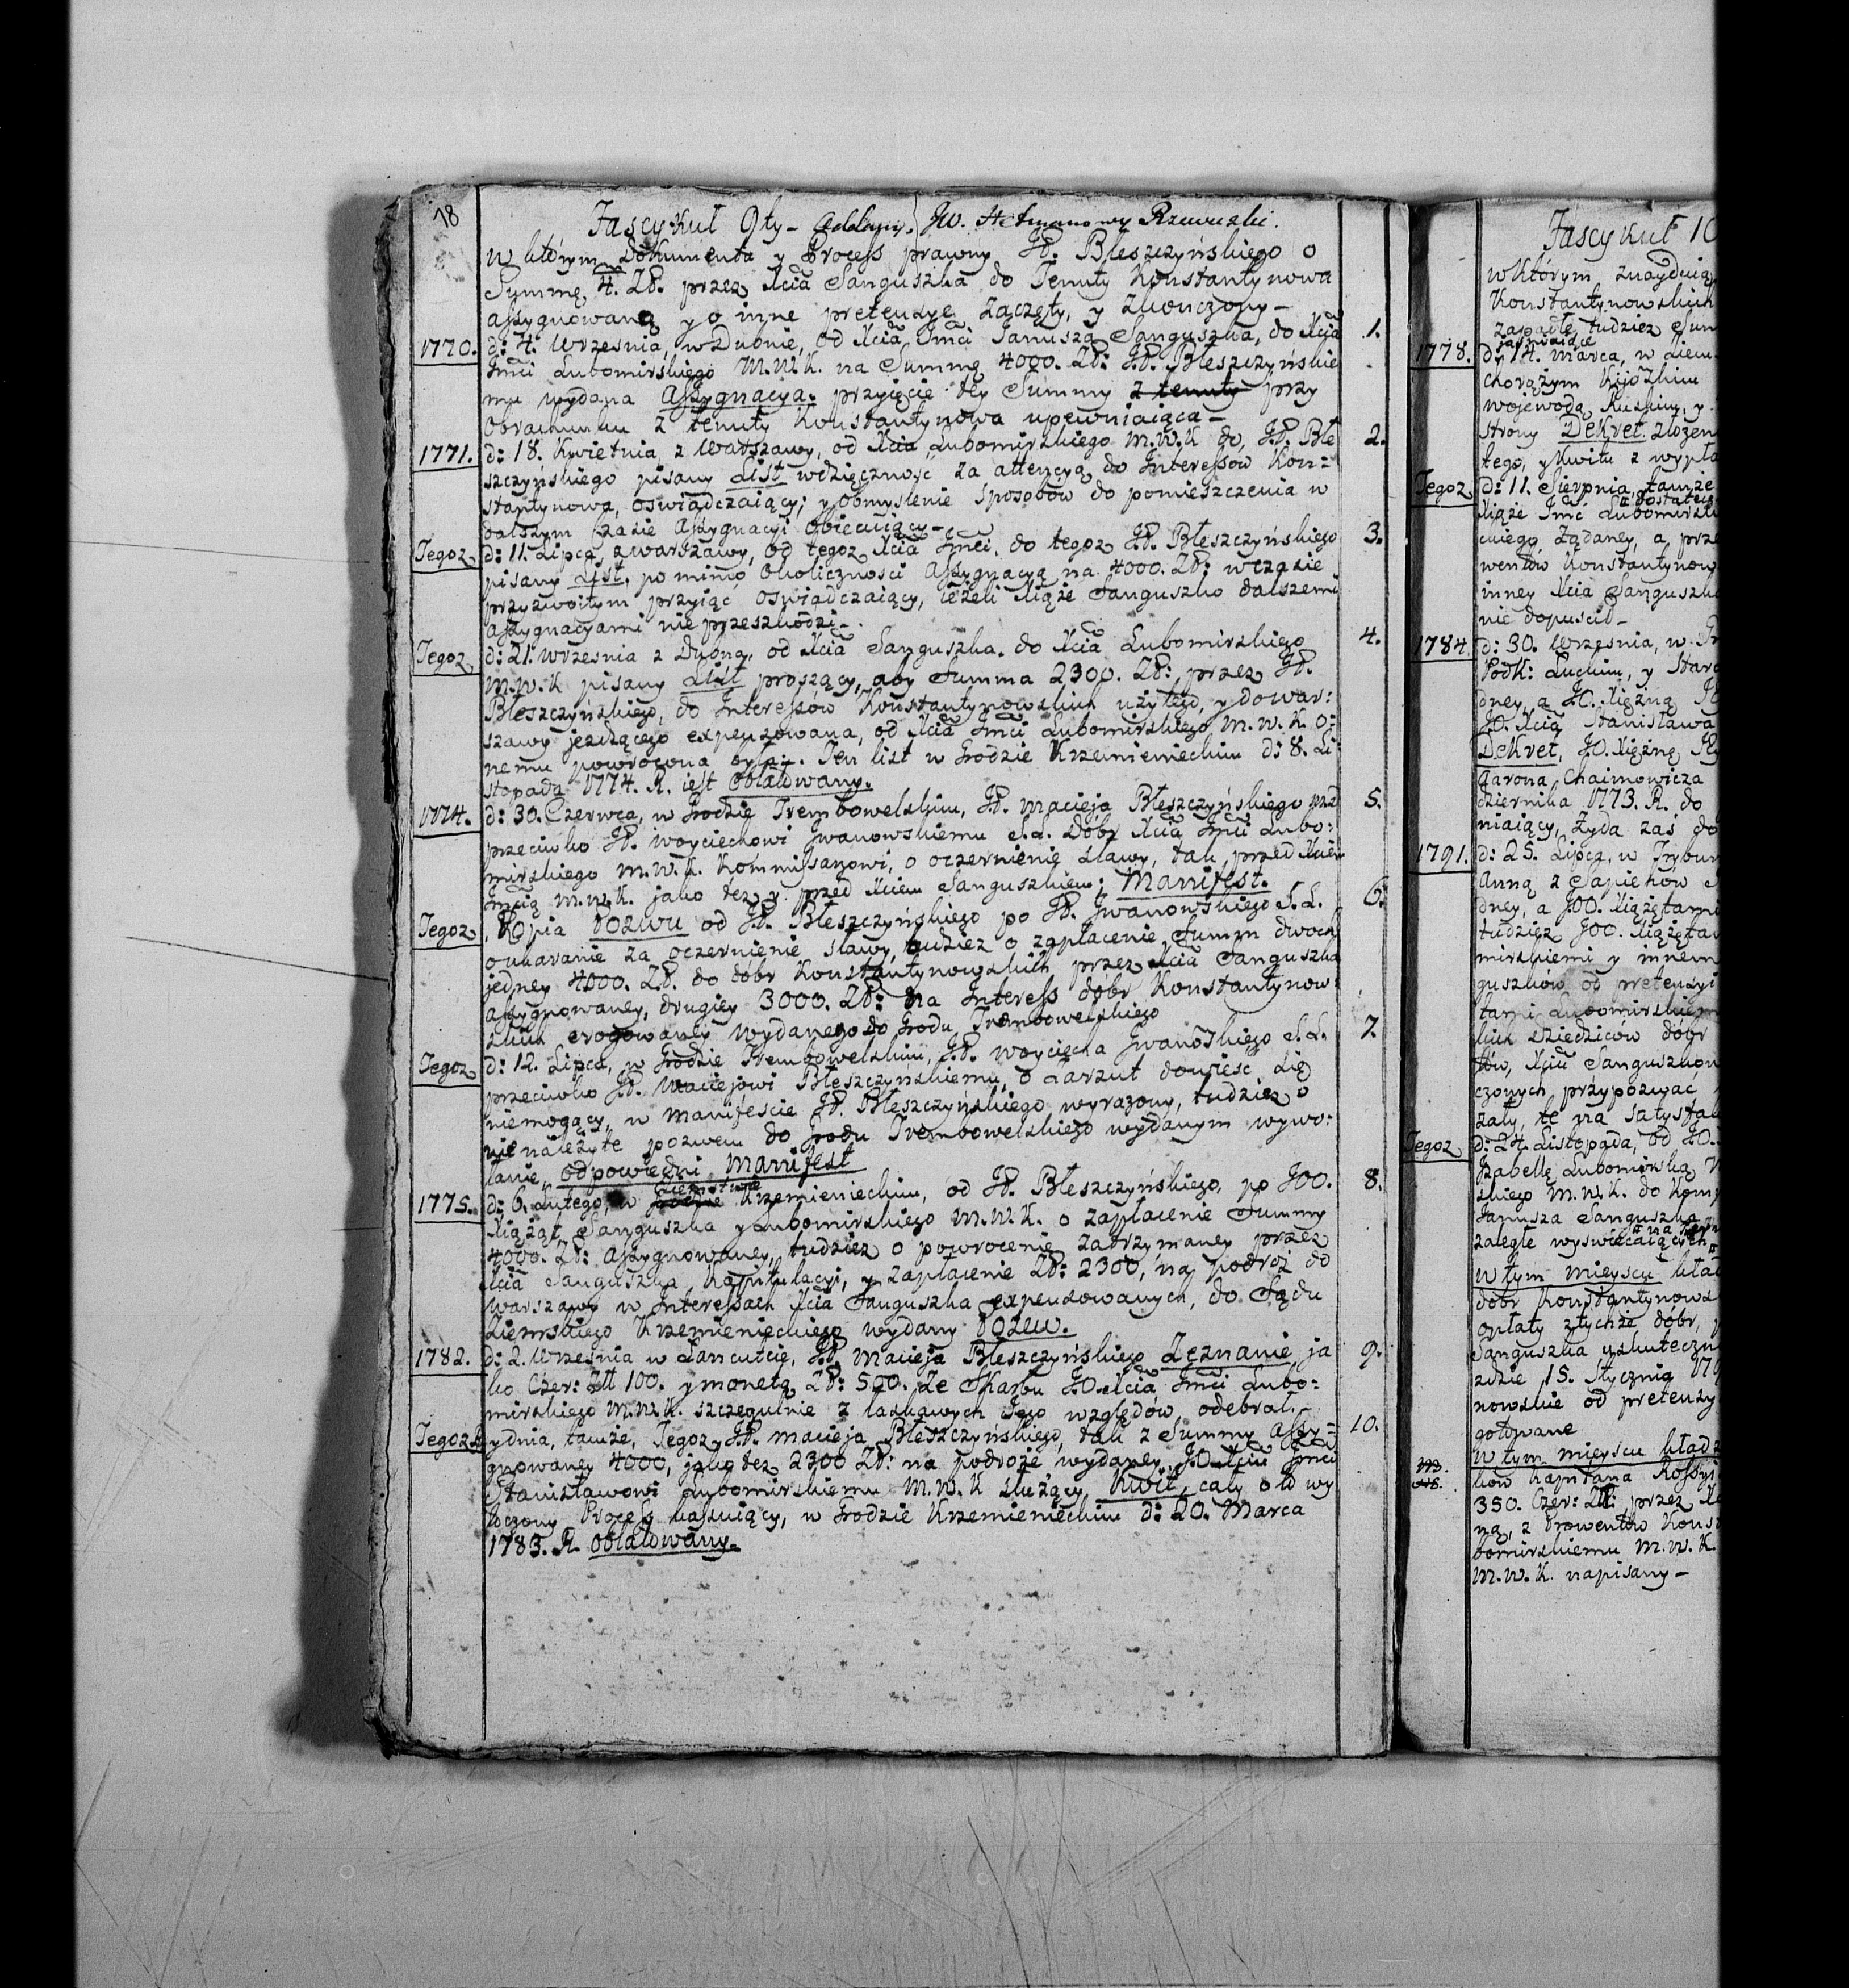 18
Fascykuł 9ty – oddany JW. Hetmanowy Rzewuski.
w którym Dokumenta y Process prawny JP. Błeszczyńskiego o
Summę 4. Zł. przez Xcia Sanguszka do Tenuty Konstantynowa
assygnowaną y o inne pretensye zaczęty, y zkończony –
1770. d: 4. Wrzesnia, w Dubnie, od Xcia Jmci Janusza Sanguszka, do Xcia 1.
Jmci Lubomirskiego M.W.K. na Summę 4000. Zł: JP. Błeszczyńskie
mu wydana Assygnacya. przyięcie tey Summy z tenuty przy
Obrachunku z tenuty Konstantynowa upewniaiąca –
1771. d: 18. Kwietnia, z Warszawy, od Xcia Lubomirskiego M.W.K do JP. Błe 2.
szczyńskiego pisany List wdzięczność za attencyą do Interessów Kon=
stantynowa, oswiadczaiący; y obmyslenie sposobów do pomieszczenia w
dalszym czasie Assygnacyi obiecuiący –
Tegoż d: 11. Lipca, z Warszawy, od tegoż Xcia Jmci, do tegoż JP. Błeszczyńskiego 3.
pisany List, pomimo okoliczności Assygnacyą na 4000. Zł: w czasie
przyzwoitym przyiąć oswiadczaiący, ieżeli Xiąże Sanguszko dalszemi
assygnacyami nie przeszkodzi –
Tegoż d: 21. Wrzesnia z Dubna, od Xcia Sanguszka. do Xcia Lubomirskiego 4.
M.W.K pisany List proszący, aby Summa 2300. Zł:, przez JP.
Błeszczyńskiego, do Interessów Konstantynowskich użytego, y do War:
szawy jezdzącego expensowana, od Xcia Jmci Lubomirskiego M.W.K. o:
nemu powrócona była. Ten list w Grodzie Krzemienieckim d: 8. Li:
stopada 1774. R. iest oblatowany.
1774. d: 30. Czerwca, w Grodzie Trembowelskim, JP. Macieja Błeszczyńskiego 5.
przeciwko JP. Woyciechowi Jwanowskiemu S.L. Dóbr Xcia Jmci Lubo:
mirskiego M.W.K. Kommissarzowi, o oczernienie sławy, tak, przed Xciem
Jmcią M.W.K. jako też y przed Xciem Sanguszkiem; Manifest.
Tegoż, Kopia Pozwu od JP. Błeszczyńskiego po JP. Jwanowskiego S.L. 6.
o ukaranie za oczernienie sławy, tudziez o zapłacenie Summ dwoch
jedney 4000. Zł. do dóbr Konstantynowskich przez Xcia Sanguszka
assygnowaney, drugiey 3000. Zł: na Interess dóbr Konstantynow:
skich erogowaney wydanego do Grodu Trembowelskiego
Tegoż d: 12. Lipca, w Grodzie Trembowelskim, JP. Woyciecha Jwanoskiego S.L. 7.
przeciwko JP. Maciejowi Błeszczyńskiemu, o zarzut dowieść się
niemogący, w manifeście JP. Błeszczyńskiego wyrażony, tudziez o
nienależyte pozwem do Grodu Trembowelskiego wydanym wywo:
łanie, odpowiedni Manifest
1775. d: 6. Lutego, w Ziemstwie Krzemienieckim, od JP. Błeszczyńskiego, po JOO. 8.
Xiążąt, Sanguszka y Lubomirskiego M.W.K. o zapłacenie Summy
4000. Zł: Assygnowaney, tudziez o powrocenie zatrzymaney przez
Xcia Sanguszka Kapitulacyi, y zapłacenie Zł: 2300, na podróż do
Warszawy w Interessach Xcia Sanguszka expensowanych, do Sądu
Ziemskiego Krzemienieckiego wydany Pozew.
1782. d: 2. Wrzesnia w Łancucie, JP. Macieja Błeszczyńskiego Zeznanie, ja 9.
ko Czer: Złł 100. y monetą Zł: 500. ze Skarbu JO. Xcia Jmci Lubo:
mirskiego M.W.K. szczegulnie z łaskawych Jego względów odebrał. –
Tegoż y dnia, tamże, Tegoż JP. Macieja Błeszczyńskiego, tak z Summy Assy= 10.
gnowaney 4000, jako też 2300 Zł: na podroże wydaney, JO. Xciu Jmci
Stanisławowi Lubomirskiemu M.W.K służący, Kwit, cały o to wy
toczony Process kassuiący, w Grodzie Krzemienieckim d: 20. Marca
1783. R. oblatowany.
Fascykuł 10
w którym znayduią
Konstantynowskich
zaszłe, tudziez Sum
1778. d: 14. Marca, w Ziem
Chorążym Kijowskim
Wojewodą Ruskim, y
strony Dekret. złożen
tego, y Kwitu z wypła
Tegoż d: 11. Sierpnia, tamże
Xiąże Jmć Lubomirski
ckiego żądaney, a prze
wentów Konstantynow
inney Xcia Sanguszka
nie dopuscił –
1784. d: 30. Wrzesnia, w
Podk: Łuckim, y Staro
dney, a JO. Xiężną
JO. Xcia Stanisława
Dekret, JO. Xiężnę
Aarona Chaimowicza
dziernika 1773. R. do
niaiący, Żyda zaś do
1791. d: 25. Lipca, w Trybun
Anną z Sapiehów
dney, a JOO. Xiążętami
tudziez JOO. Xiążęta
mirskiemi y innem
guszków od pretensyi
tami Lubomirskiem
kich dziedziców dóbr
tów, Xciu Sanguszkow
czonych przypozwać
zały, te na satysfa
Tegoż d: 24. Listopada, od JO.
Jzabellę Lubomirską
skiego M.W.K. do Kom
Janusza Sanguszka
zaległe wyswiecaiących
W tym mieyscu kład
dóbr Konstantynows
opłaty z tychże dóbr,
Sanguszka y skuteczn
zdzie 15. Stycznia 179
nowskie od pretensy
gotowane
W tym mieyscu kład
ków Kapitana Rossyi
350. Czer: Złł: przez Xc
ną, z Prowentów Kons
bomirskiemu M.W.K.
M.W.K. napisany –